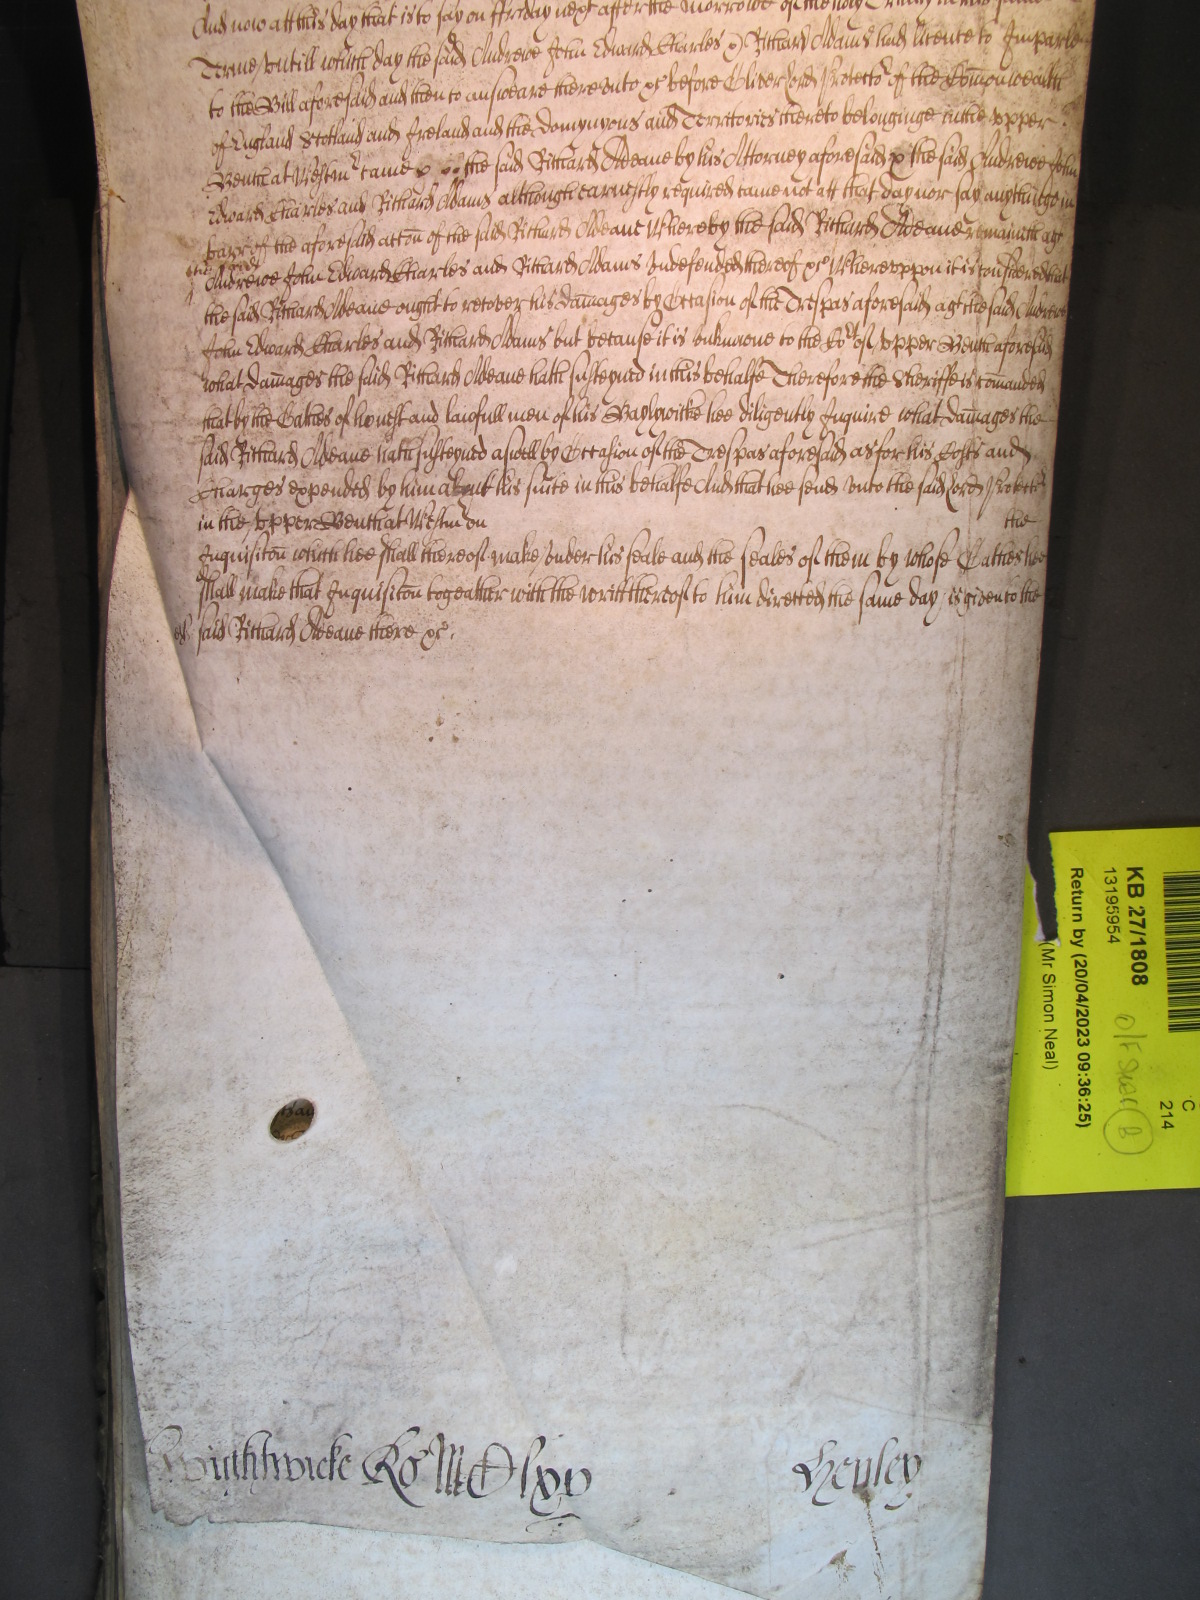 And now att this day that is to say on ffriday next after the Morrowe of the holy Trinity in this same
Terme untill which day the said Andrewe John Edward Charles & Richard Adams had licence to Imparle
to the Bill aforesaid and then to answeare thereunto &c before Oliver Lord Protector of the Comonwealth
of England Scotland and Ireland and the Domynyons and Territories thereto belonginge in the upper
Bench at Westmr came the said Richard Deane by his Attorney aforesaid & the said Andrewe John
Edward Charles and Richard Adams although earnestly required came not att that day nor say anythinge in
barr of the aforesaid accon of the said Richard Deane Whereby the said Richard Deane remaineth agt
the said
Andrewe John Edward Charles and Richard Adams Undefended thereof &c Whereuppon it is considered that
the said Richard Deane ought to recover his damages by Occasion of the Trespas aforesaid agt the said Andrewe
John Edward Charles and Richard Adams but because it is unknowne to the Cort of upper Bench aforesaid
what damages the said Richard Deane hath susteyned in this behalfe Therefore the Sheriffe is comanded
that by the Oathes of honest and lawfull men of his Baylywicke hee diligently Inquire what damages the
said Richard Deane hath susteyned aswell by Occasion of the Trespas aforesaid as for his Costs and
Charges expended by him about his suite in this behalfe And that hee send unto the said Lord Protector
in the upper Bench at Westmr on the
Inquisicon which hee shall thereof make under his seale and the seales of them by whose Oathes hee
shall make that Inquisicon togeather with the writt thereof to him directed the same day is given to the
said Richard Deane there &c.
Wightwicke Ro MDlxv Henley
KB 27/1808
13195954
Return by (20/04/2023 09:36:25)
(Mr Simon Neal)
C
214
B